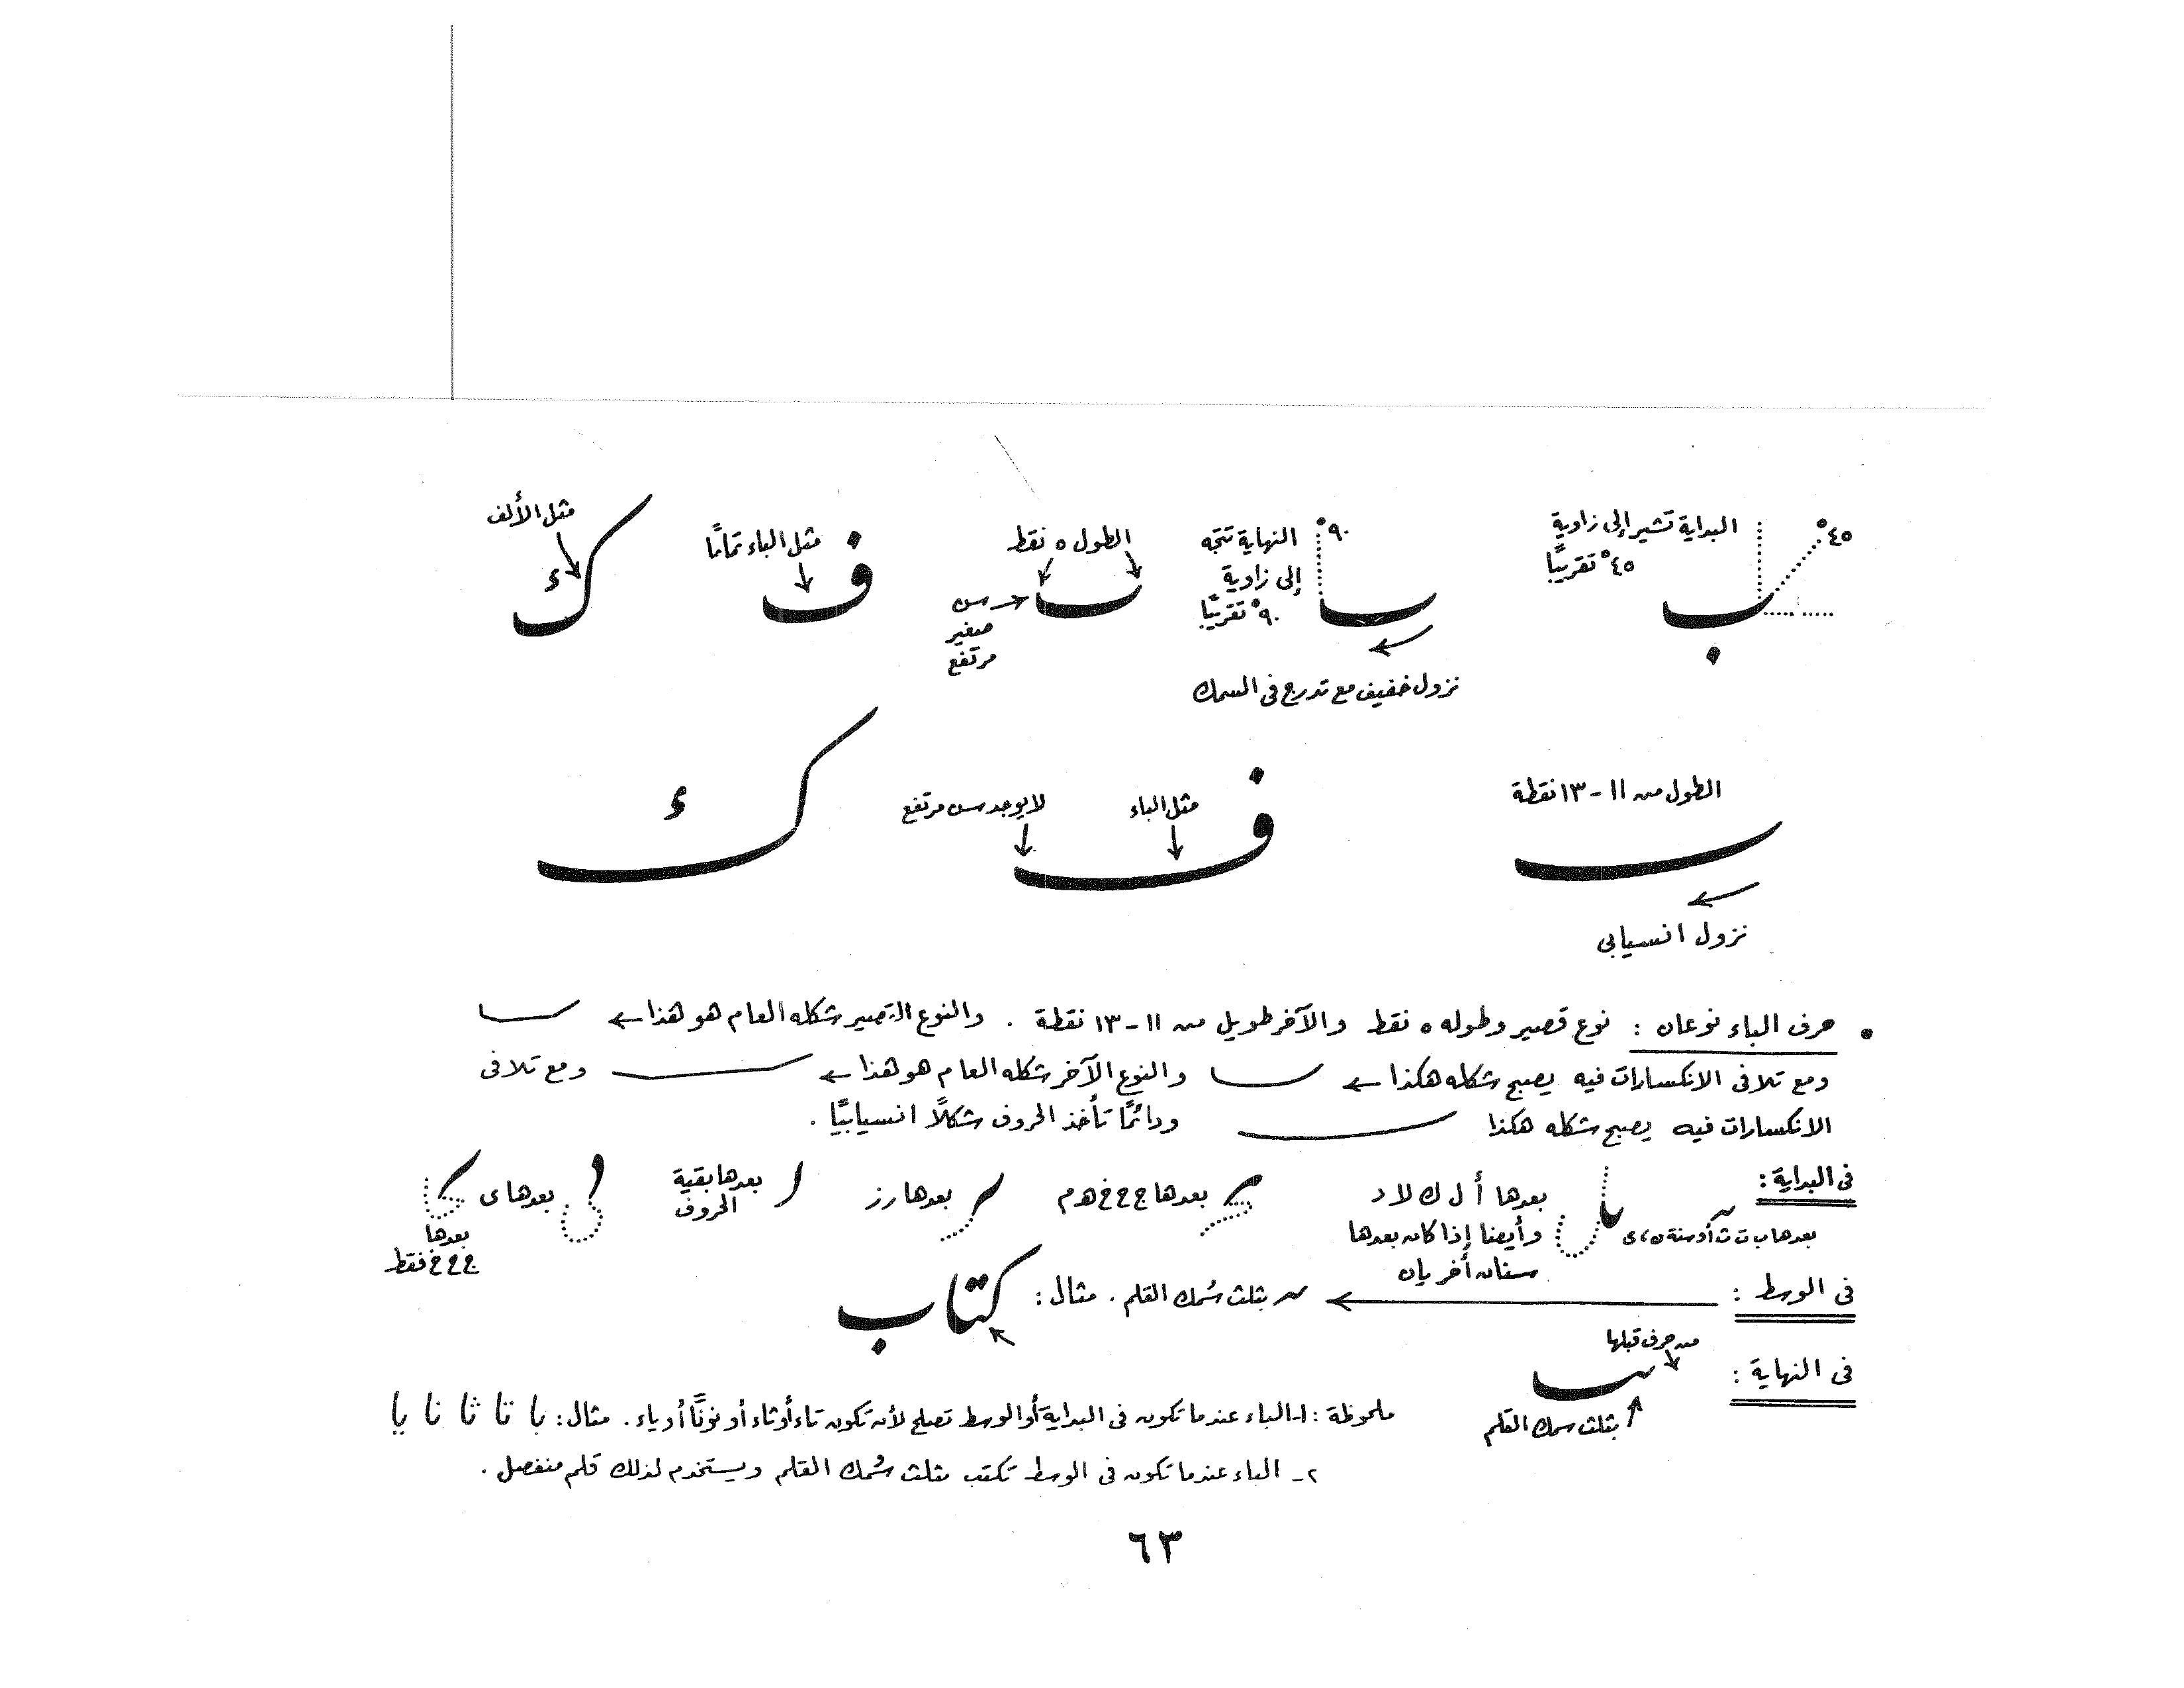 ٤٥°
البداية تشير إلى زاوية
٤٥° تقريبًا
ب
٩٠°
النهاية تتجه
إلى زاوية
٩٠° تقريبًا
نزول خفيف مع تدرج فى السمك
الطول ٥ نقط
سن
صغير
مرتفع
مثل الباء تمامًا
ف
مثل الألف
ك
الطول من ١١ - ١٣ نقطة
نزول انسيابى
مثل الباء
لا يوجد سن مرتفع
ف
ك
• حرف الباء نوعان : نوع قصير وطوله ٥ نقط والآخر طويل من ١١ - ١٣ نقطة . والنوع القصير شكله العام هو هذا ←
ومع تلافى الانكسارات فيه يصبح شكله هكذا ← والنوع الآخر شكله العام هو هذا ← ومع تلافى
الانكسارات فيه يصبح شكله هكذا ودائمًا تأخذ الحروف شكلاً انسيابيًا .
فى البداية :
بعدها ب ت ث أو سنة ن ، ى
بعدها أ ل ك لا د
وأيضا إذا كان بعدها
سنان أخريان
بعدها ج ح خ هـ م
بعدها ر ز
بعدها بقية
الحروف
بعدها ى
بعدها
ج ح خ فقط
فى الوسط : ← بثلث سُمك القلم . مثال : كتاب
فى النهاية :
من حرف قبلها
بثلث سمك القلم
ملحوظة : ١- الباء عندما تكون فى البداية أو الوسط تصلح لأن تكون تاء أو ثاء أو نونًا أو ياء . مثال : با تا ثا نا يا
٢- الباء عندما تكون فى الوسط تكتب بثلث سُمك القلم ويستخدم لذلك قلم منفصل .
٦٣